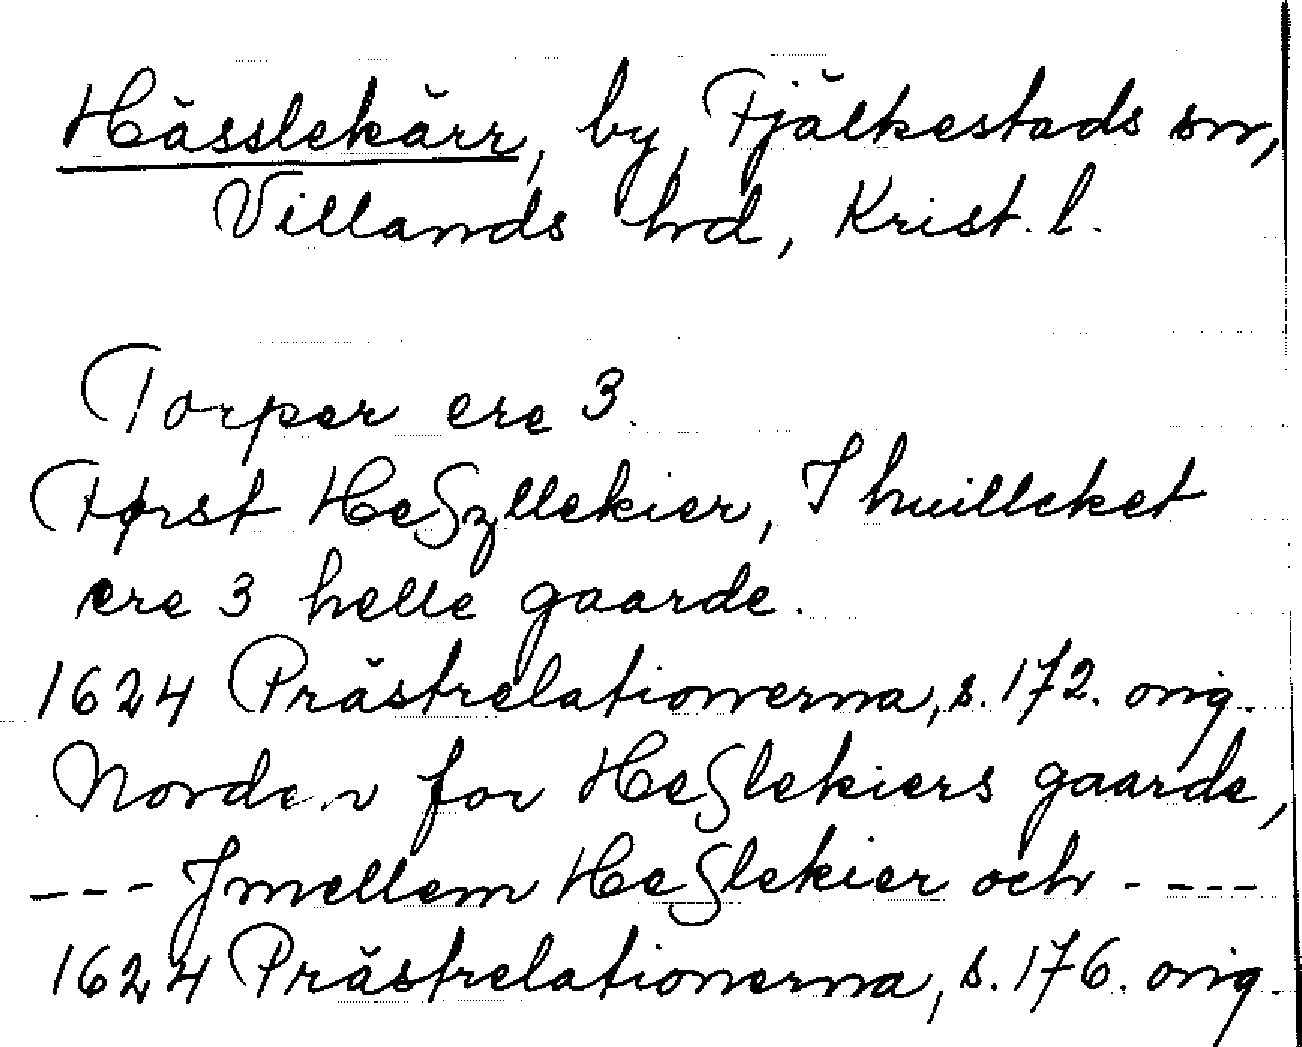 Hässlekärr, by, Fjälkestads sn,
Villands hd, Krist. l.
Torper ere 3.
Først Heßzllekier, I huilleket
ere 3 helle gaarde.
1624 Prästrelationerna, s. 172. orig.
Norden for Heßlekiers gaarde,
--- Jmellem Heßlekier och ----
1624 Prästrelationerna, s. 176. orig.